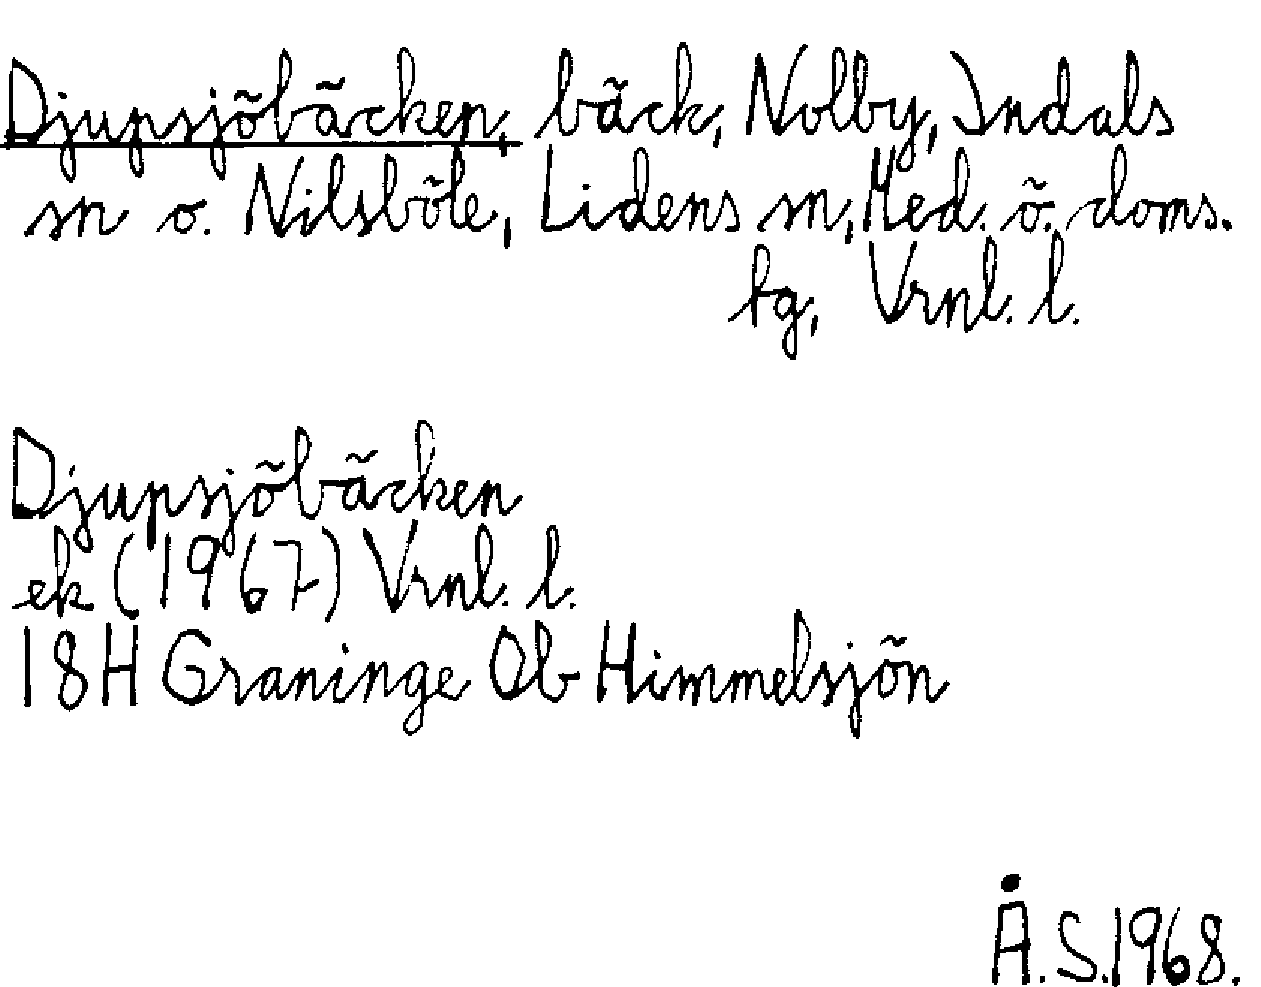 Djupsjöbäcken, bäck, Nolby, Indals
sn o. Nilsböle, Lidens sn, Med. ö. doms.
tg, Vrnl. l.
Djupsjöbäcken
ek (1967) Vrnl. l.
18H Graninge Ob Himmelsjön
Å.S. 1968.